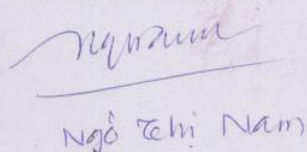 Ngô Thị Nam